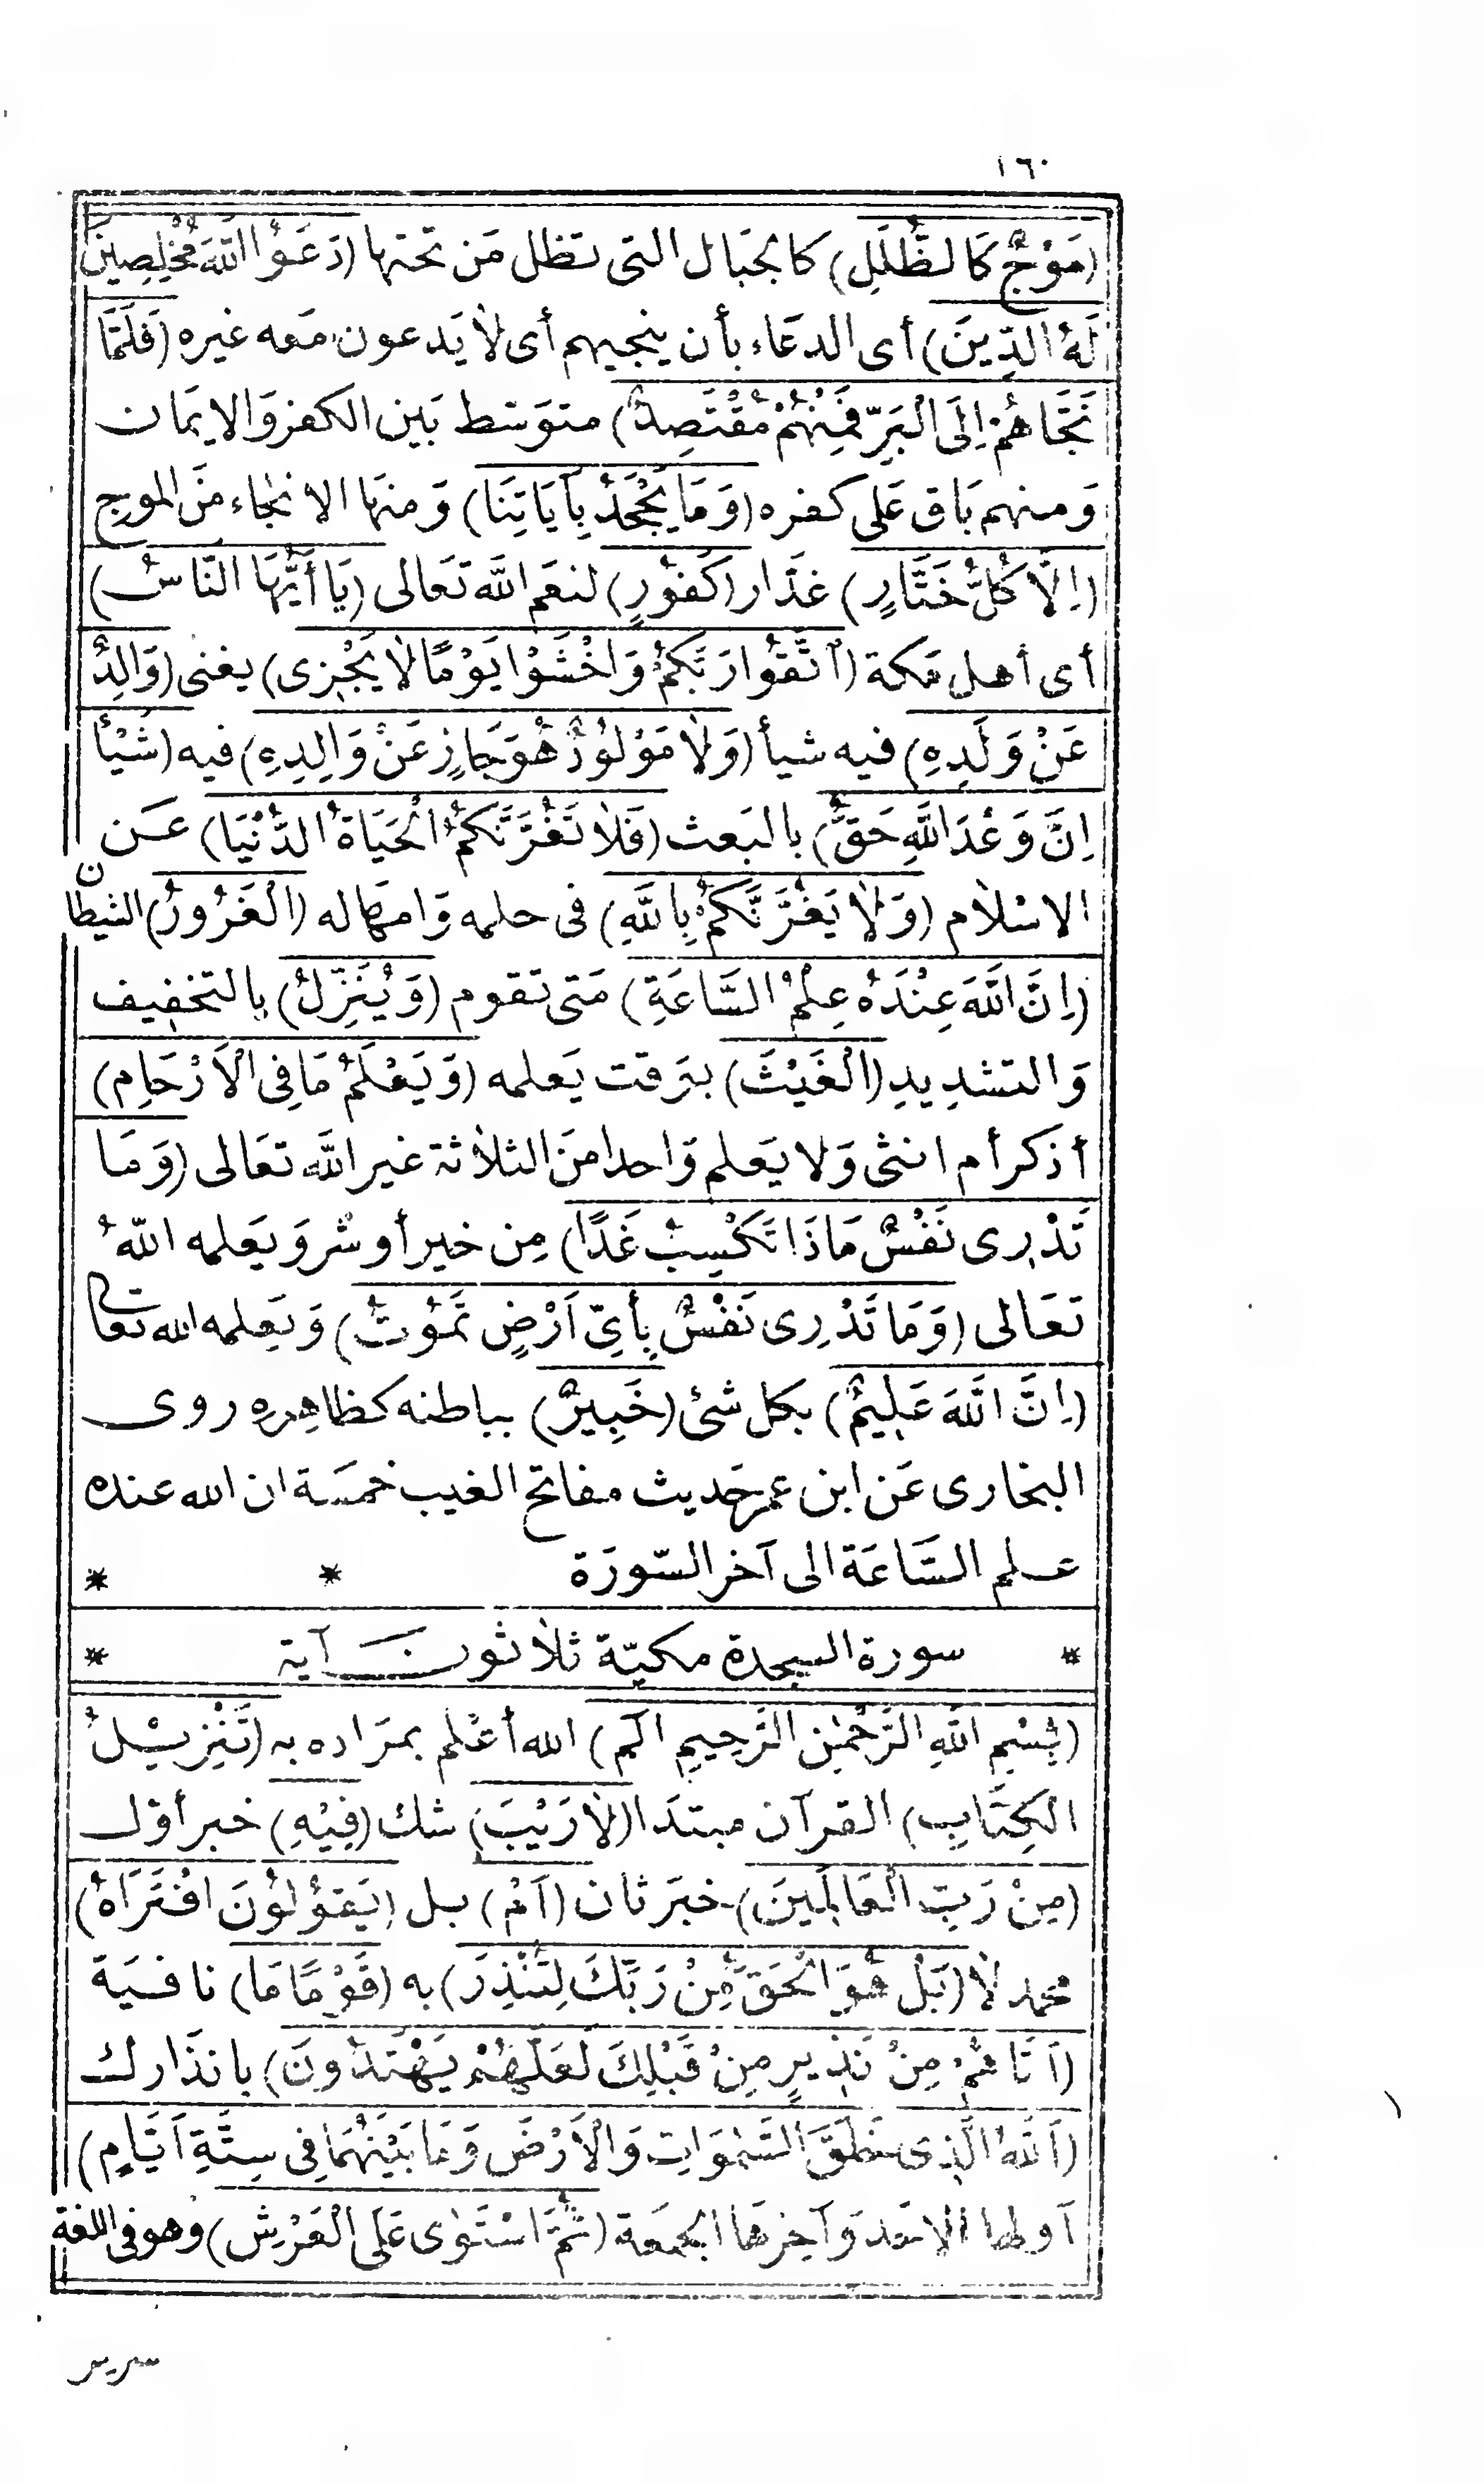 ١٦٠
(مَوْجٌ كَالظُّلَلِ) كالجبال التى تظل مَن تحتها (دَعَوُا اللَّهَ مُخْلِصِينَ
لَهُ الدِّينَ) أى الدعاء بأن ينجيهم أى لا يَدعون معه غيره (فَلَمَّا
نَجَّاهُمْ اِلَى الْبَرِّ فَمِنْهُمْ مُقْتَصِدٌ) متوَسط بَين الكفر وَالايمَان
وَمنهم بَاق عَلى كفره (وَمَا يَجْحَدُ بِآيَاتِنَا) وَمنهَا الانجاء منَ الموج
(اِلَّا كُلُّ خَتَّارٍ) غدَّار (كَفُورٍ) لنعَم اللَّه تعَالى (يَا أَيُّهَا النَّاسُ)
أى أهل مَكة (اتَّقُوا رَبَّكُمْ وَاخْشَوْا يَوْمًا لَا يَجْزِى) يغنى (وَالِدٌ
عَنْ وَلَدِهِ) فيه شيأ (وَلَا مَوْلُودٌ هُوَ جَازٍ عَنْ وَالِدِهِ) فيه (شَيْأً
اِنَّ وَعْدَ اللَّهِ حَقٌّ) بالبَعث (فَلَا تَغُرَّنَّكُمُ الْحَيَاةُ الدُّنْيَا) عَن
الاسْلام (وَلَا يَغُرَّنَّكُمْ بِاللَّهِ) فى حلمه وَامهَاله (الْغَرُورُ) الشيطان
(اِنَّ اللَّهَ عِنْدَهُ عِلْمُ السَّاعَةِ) مَتى تقوم (وَيُنَزِّلُ) بالتخفيف
وَالتشديدِ (الْغَيْثَ) بوَقت يَعلمه (وَيَعْلَمُ مَا فِى الْاَرْحَامِ)
أذكر أم انثى وَلا يَعلم وَاحدا منَ الثلاثة غير اللَّه تعَالى (وَمَا
تَدْرِى نَفْسٌ مَاذَا تَكْسِبُ غَدًا) مِن خير أو شر وَيَعلمه اللَّهُ
تعَالى (وَمَا تَدْرِى نَفْسٌ بِأَىِّ اَرْضٍ تَمُوتُ) وَيَعلمه الله تعالى
(اِنَّ اللَّهَ عَلِيمٌ) بكل شئ (خَبِيرٌ) بباطنه كظاهِره روى
البخارى عَن ابن عمر حَديث مفاتح الغيب خمسَة ان الله عنده
علم السَّاعَة الى آخر السّورَة * *
* سورة السجدة مكيّة ثلاثون آية *
(بِسْمِ اللَّهِ الرَّحْمٰنِ الرَّحِيمِ الٓمٓ) الله أعْلم بمرَاده به (تَنْزِيلُ
الْكِتَابِ) القرآن مبتدَا (لَا رَيْبَ) شك (فِيْهِ) خبر أوّل
(مِنْ رَبِّ الْعَالَمِينَ) خبرَ ثان (اَمْ) بل (يَقُوْلُوْنَ افْتَرَاهُ)
محمد لا (بَلْ هُوَ الْحَقُّ مِنْ رَبِّكَ لِتُنْذِرَ) به (قَوْمًا مَا) نافيَة
(اَتَاهُمْ مِنْ نَذِيرٍ مِنْ قَبْلِكَ لَعَلَّهُمْ يَهْتَدُونَ) بانذَارك
(اَللَّهُ الَّذِى خَلَقَ السَّمٰوَاتِ وَالْاَرْضَ وَمَا بَيْنَهُمَا فِى سِتَّةِ اَيَّامٍ)
اَولها الاحَد وَآخِرهَا الجمعَة (ثُمَّ اسْتَوٰى عَلَى الْعَرْشِ) وهو فى اللغة